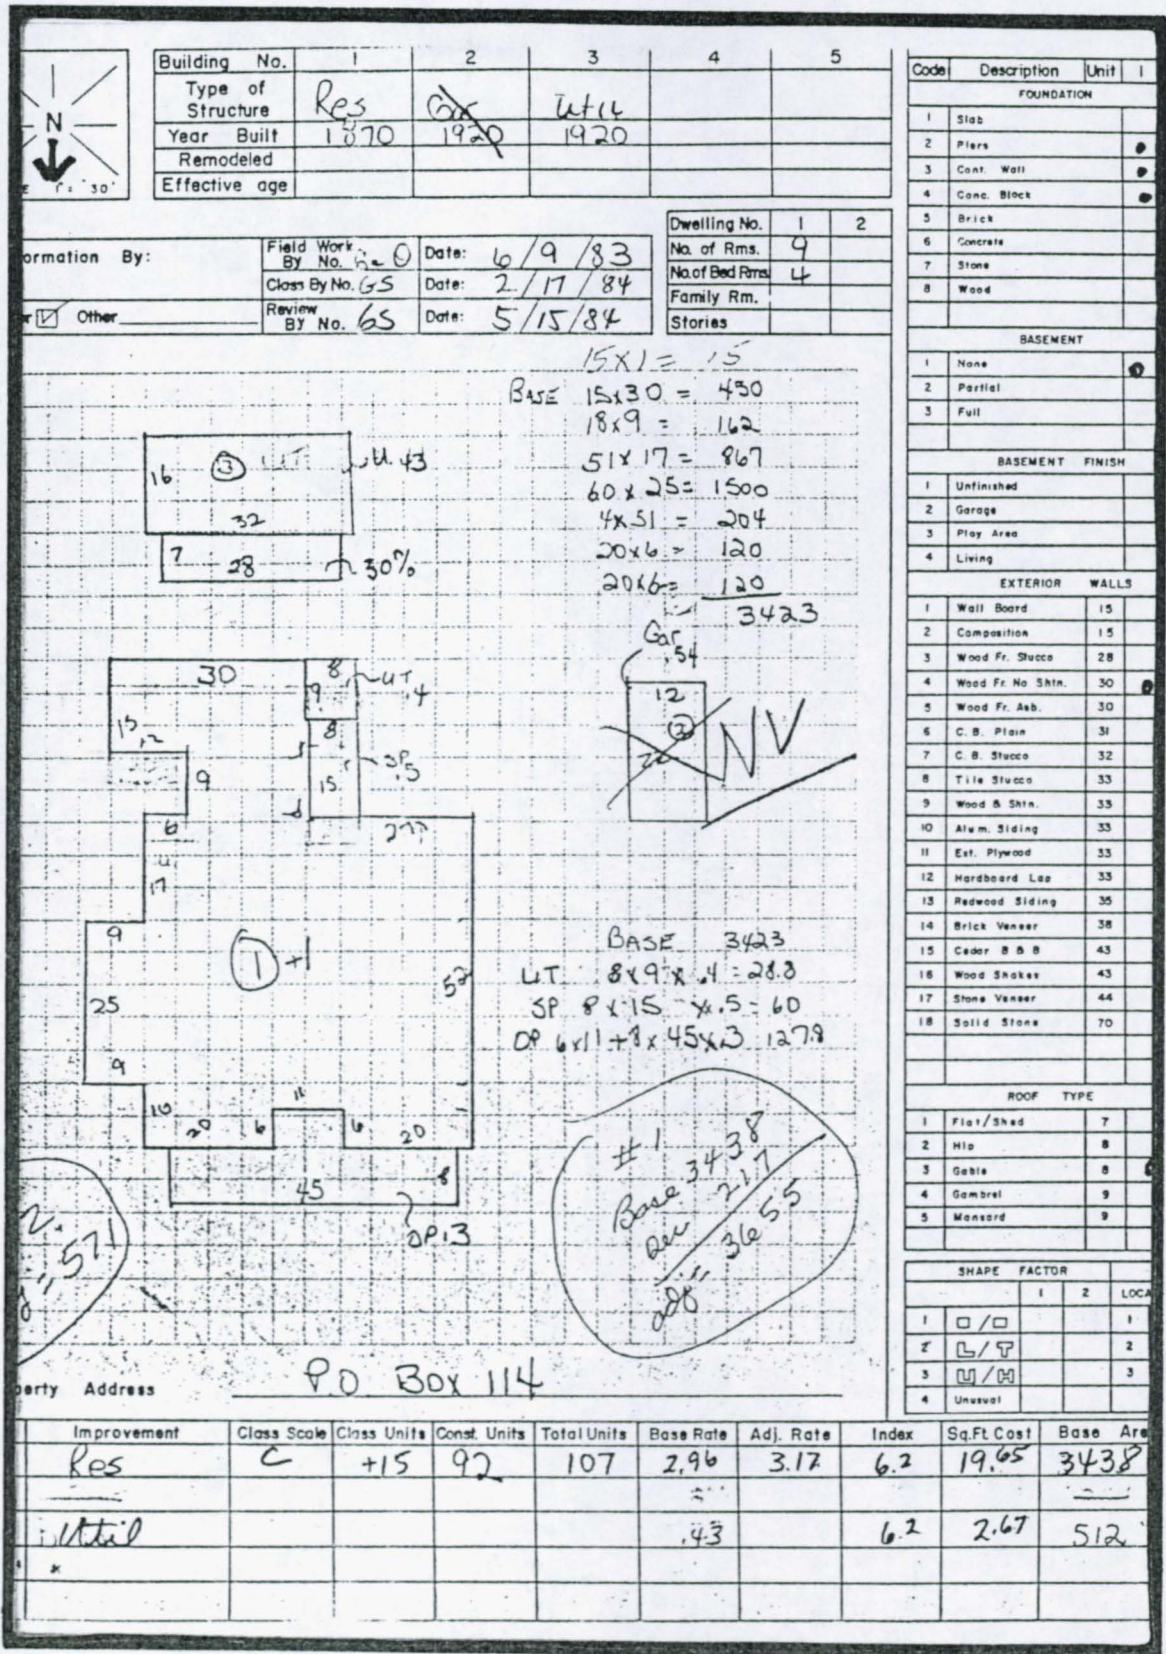 Building No. 1 2 3 4 5
Type of Structure Res Gar Util
Year Built 1870 1920 1920
Remodeled
Effective age
N
1" = 30'
Dwelling No. 1 2
No. of Rms. 9
No. of Bed Rms. 4
Family Rm.
Stories
ormation By:
Field Work By No. Date: 6/9/83
Class By No. GS Date: 2/17/84
Review By No. GS Date: 5/15/84
Other
15x1 = 15
BASE 15x30 = 450
18x9 = 162
51x17 = 867
60x25 = 1500
4x51 = 204
20x6 = 120
20x6 = 120
3423
16 3 UT. U.43
32
7 28 30%
Gar .54
12
2
22
NV
30 8 UT .4
9
15 12 8
9 15 SP .5
6 27
17
9
1 +1
25 52
9
10 11
20 6 6 20
45 8
OP .3
BASE 3423
UT 8x9x.4 = 28.8
SP 8x15 x.5 = 60
OP 6x11+8x45x.3 127.8
# 1
Base 3438
217
adj = 3655
= 571
perty Address P.O BOX 114
Improvement Class Scale Class Units Const. Units Total Units Base Rate Adj. Rate Index Sq.Ft Cost Base Are
Res C +15 92 107 2.96 3.17 6.2 19.65 3438
Util .43 6.2 2.67 512
Code Description Unit 1
FOUNDATION
1 Slab
2 Piers
3 Cont. Wall
4 Conc. Block
5 Brick
6 Concrete
7 Stone
8 Wood
BASEMENT
1 None
2 Partial
3 Full
BASEMENT FINISH
1 Unfinished
2 Garage
3 Play Area
4 Living
EXTERIOR WALLS
1 Wall Board 15
2 Composition 15
3 Wood Fr. Stucco 28
4 Wood Fr. No Shtn. 30
5 Wood Fr. Asb. 30
6 C. B. Plain 31
7 C. B. Stucco 32
8 Tile Stucco 33
9 Wood & Shtn. 33
10 Alum. Siding 33
11 Ext. Plywood 33
12 Hardboard Lap 33
13 Redwood Siding 35
14 Brick Veneer 38
15 Cedar B & B 43
16 Wood Shakes 43
17 Stone Veneer 44
18 Solid Stone 70
ROOF TYPE
1 Flat/Shed 7
2 Hip 8
3 Gable 8
4 Gambrel 9
5 Mansard 9
SHAPE FACTOR
1 2 LOCA
1 1
2 L/T 2
3 U/H 3
4 Unusual